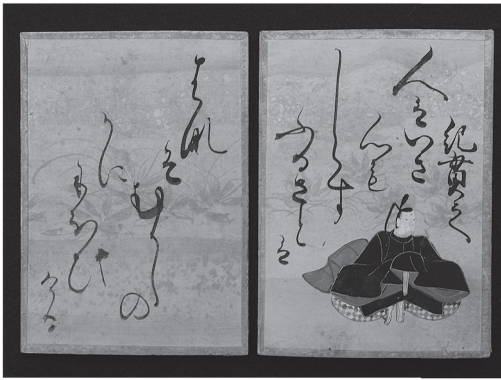 紀貫之
人はいさ
心も
しらす
ふるさとは
はなそ
むかしの
かに
にほひ
ける